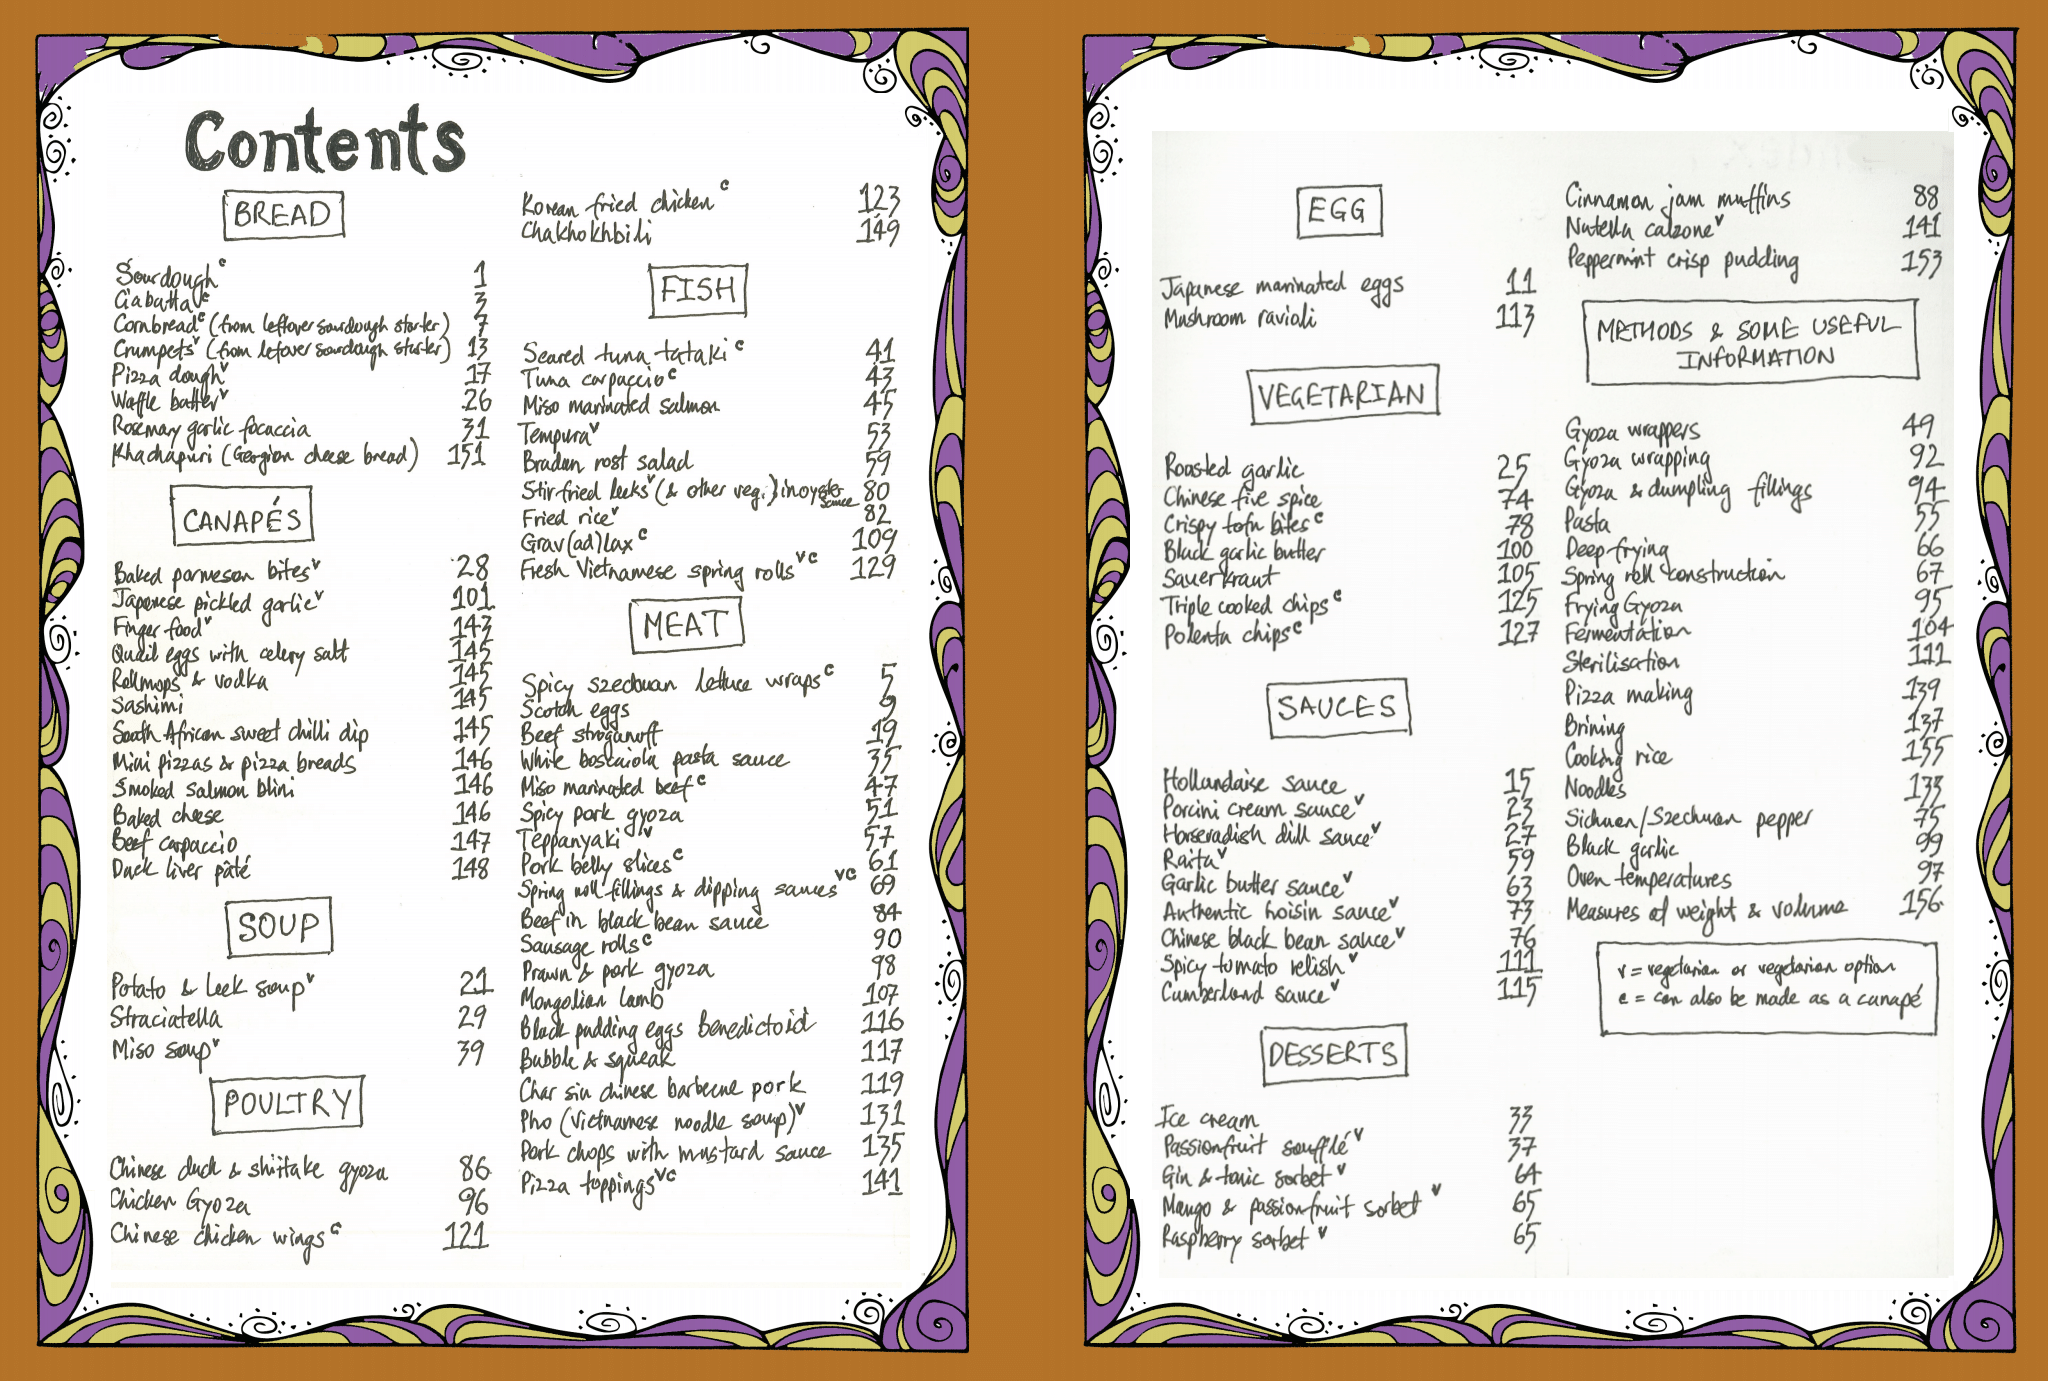 Contents
BREAD
Sourdough c 1
Ciabatta c 3
Cornbread c (from leftover sourdough starter) 7
Crumpets v (from lefover sourdough starter) 13
Pizza dough v 17
Waffle batter v 26
Rosemary garlic focaccia 31
Khachapuri (Georgian cheese bread) 151
CANAPÉS
Baked parmesan bites v 28
Japanese pickled garlic v 101
Finger food v 143
Quail eggs with celery salt 145
Rollmops & vodka 145
Sashimi 145
South African sweet chilli dip 145
Mini pizzas & pizza breads 146
Smoked salmon blini 146
Baked cheese 146
Beef carpaccio 147
Duck liver pâté 148
SOUP
Potato & leek soup v 21
Straciatella 29
Miso soup v 39
POULTRY
Chinese duck & shiitake gyoza 86
Chicken Gyoza 96
Chinese chicken wings c 121
Korean fried chicken c 123
Chakhokhbili 149
FISH
Seared tuna tataki c 41
Tuna carpaccio c 43
Miso marinated salmon 45
Tempura v 53
Bradan rost salad 59
Stir fried leeks v (& other veg.) in oyster sauce 80
Fried rice v 82
Grav(ad)lax c 109
Fresh Vietnamese spring rolls v c 129
MEAT
Spicy szechuan lettuce wraps c 5
Scotch eggs 9
Beef stroganoff 19
White boscaiola pasta sauce 35
Miso marinated beef c 47
Spicy pork gyoza 51
Teppanyaki v 57
Pork belly slices c 61
Spring roll fillings & dipping sauces v c 69
Beef in black bean sauce 84
Sausage rolls c 90
Prawn & pork gyoza 98
Mongolian lamb 107
Black pudding eggs Benedictoid 116
Bubble & squeak 117
Char siu chinese barbecue pork 119
Pho (Vietnamese noodle soup) v 131
Pork chops with mustard sauce 135
Pizza toppings v c 141
EGG
Japanese marinated eggs 11
Mushroom ravioli 113
VEGETARIAN
Roasted garlic 25
Chinese five spice 74
Crispy tofu bites c 78
Black garlic butter 100
Sauerkraut 105
Triple cooked chips c 125
Polenta chips c 127
SAUCES
Hollandaise sauce 15
Porcini cream sauce v 23
Horseradish dill sauce v 27
Raita v 59
Garlic butter sauce v 63
Authentic hoisin sauce v 73
Chinese black bean sauce v 76
Spicy tomato relish v 111
Cumberland sauce v 115
DESSERTS
Ice cream 33
Passionfruit soufflé v 37
Gin & tonic sorbet v 64
Mango & passionfruit sorbet v 65
Raspberry sorbet v 65
Cinnamon jam muffins 88
Nutella calzone v 141
Peppermint crisp pudding 153
METHODS & SOME USEFUL
INFORMATION
Gyoza wrappers 49
Gyoza wrapping 92
Gyoza & dumpling fillings 94
Pasta 55
Deep frying 66
Spring roll construction 67
Frying Gyoza 95
Fermentation 104
Sterilisation 111
Pizza making 139
Brining 137
Cooking rice 155
Noodles 133
Sichuan/Szechuan pepper 75
Black garlic 99
Oven temperatures 97
Measures of weight & volume 156
v = vegetarian or vegetarian option
c = can also be made as a canapé